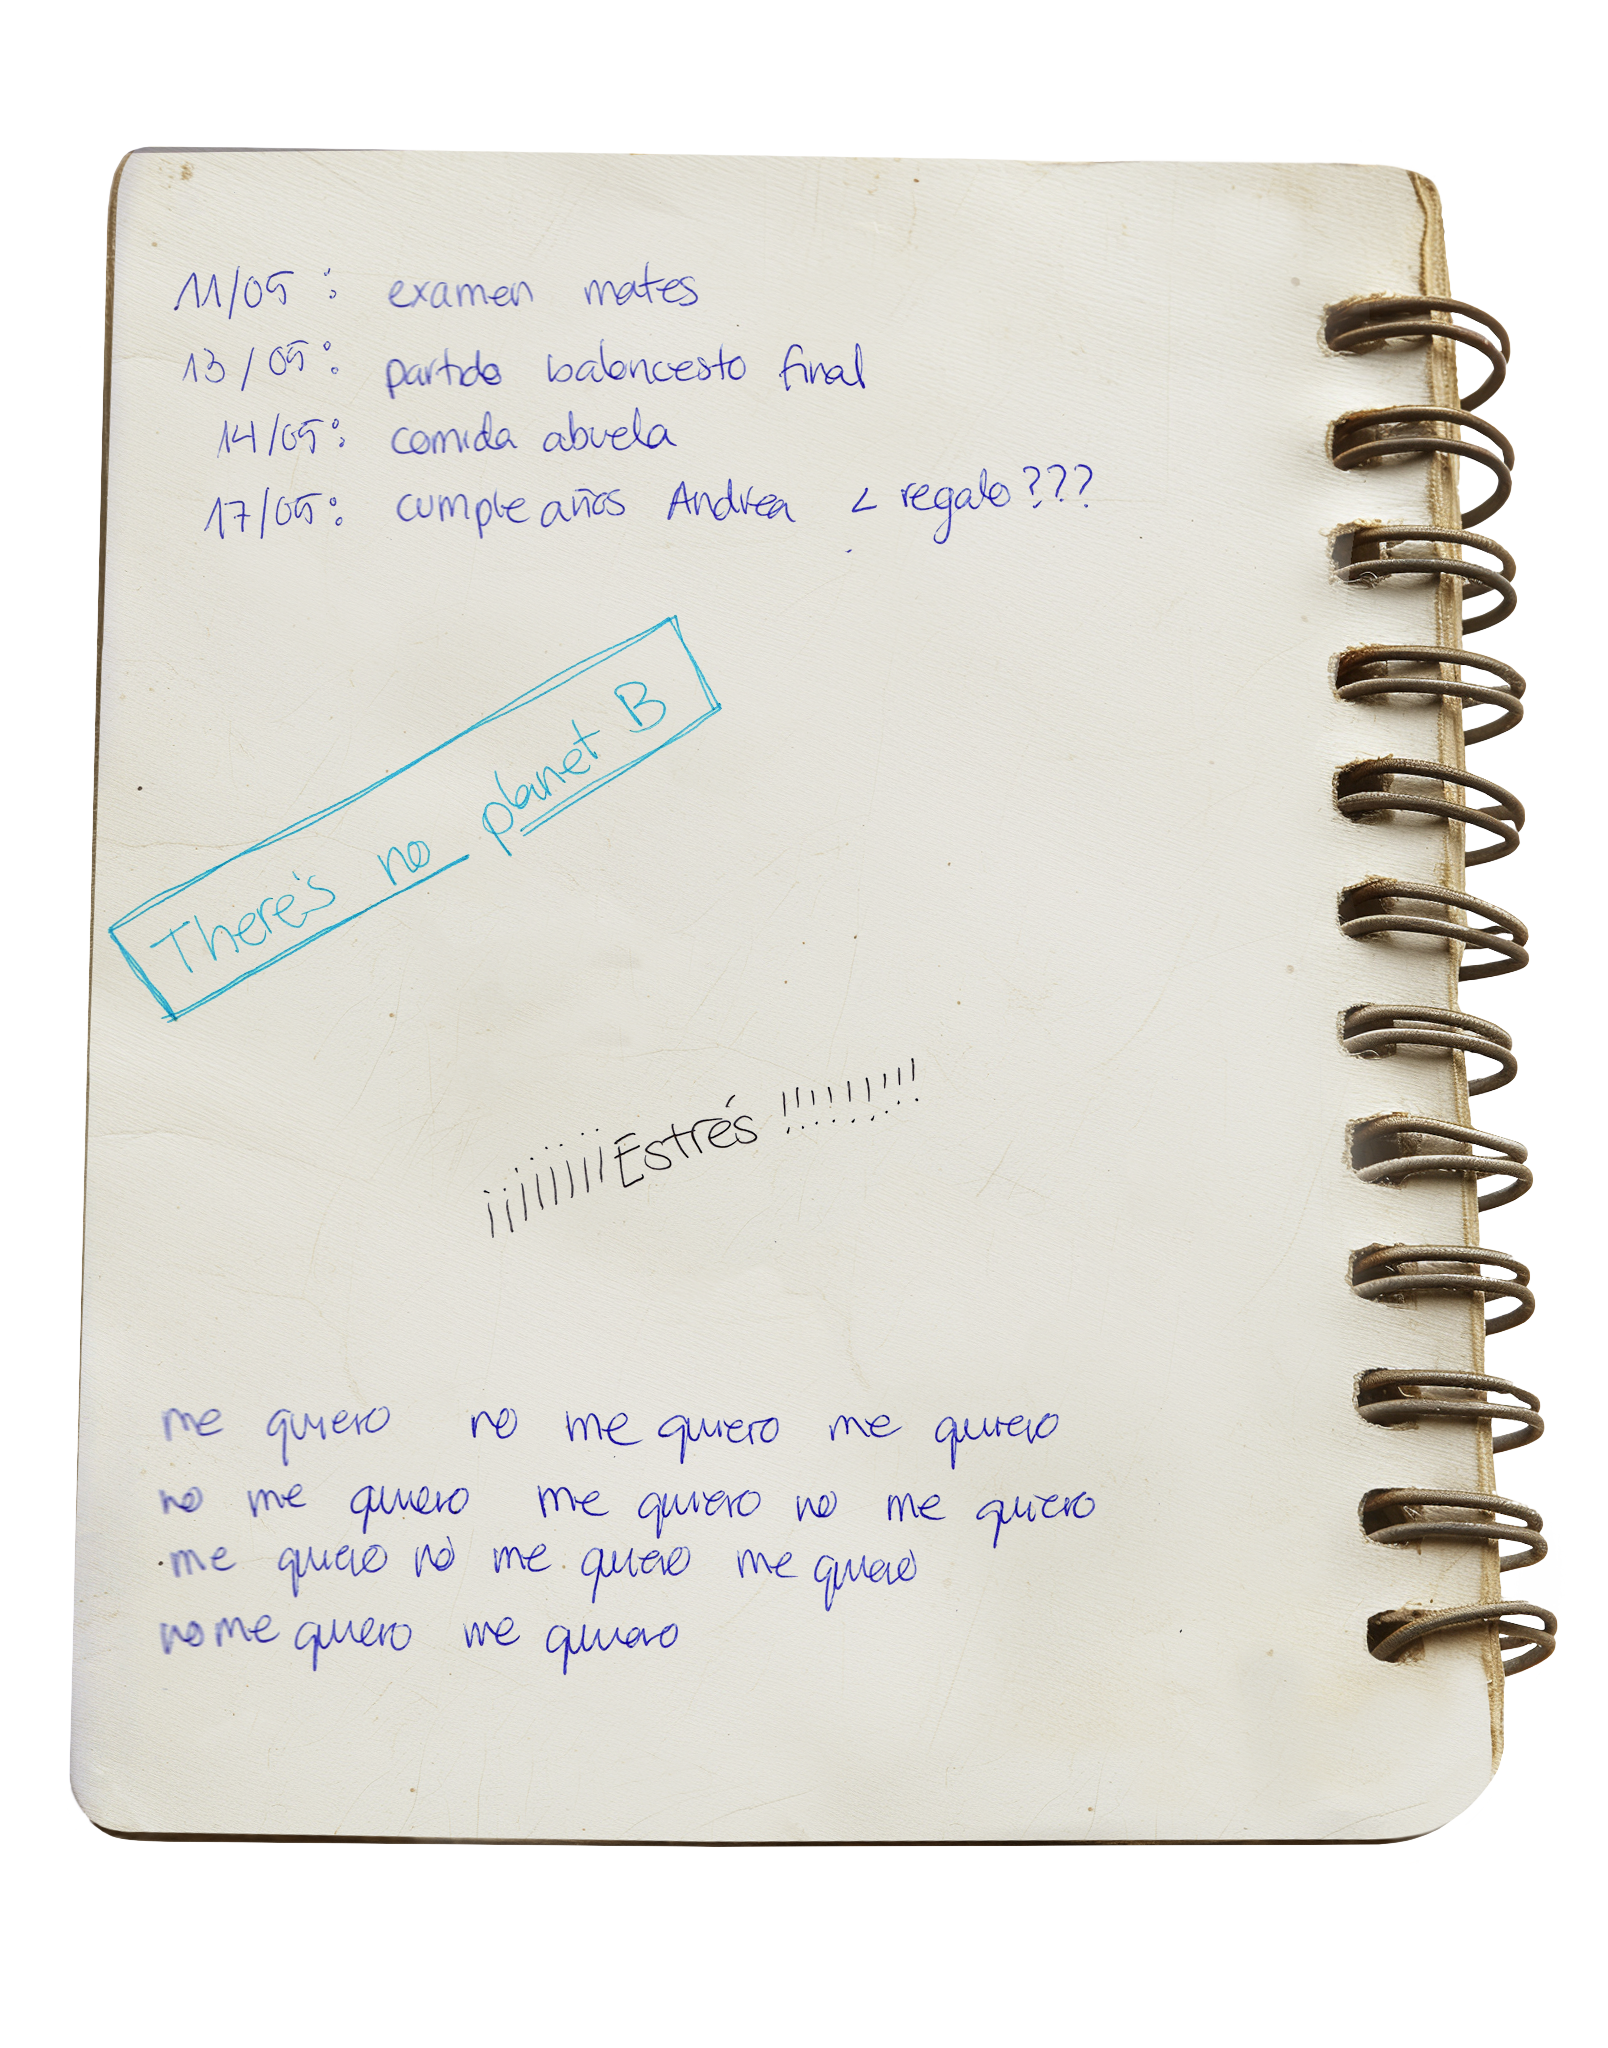 11/05: examen mates
13/05: partido baloncesto final
14/05: comida abuela
17/05: cumpleaños Andrea < regalo???
There's no planet B
¡¡¡¡¡¡¡¡Estrés!!!!!!!!!
me quiero no me quiero me quiero
no me quiero me quiero no me quiero
me quiero no me quiero me quiero
no me quiero me quiero